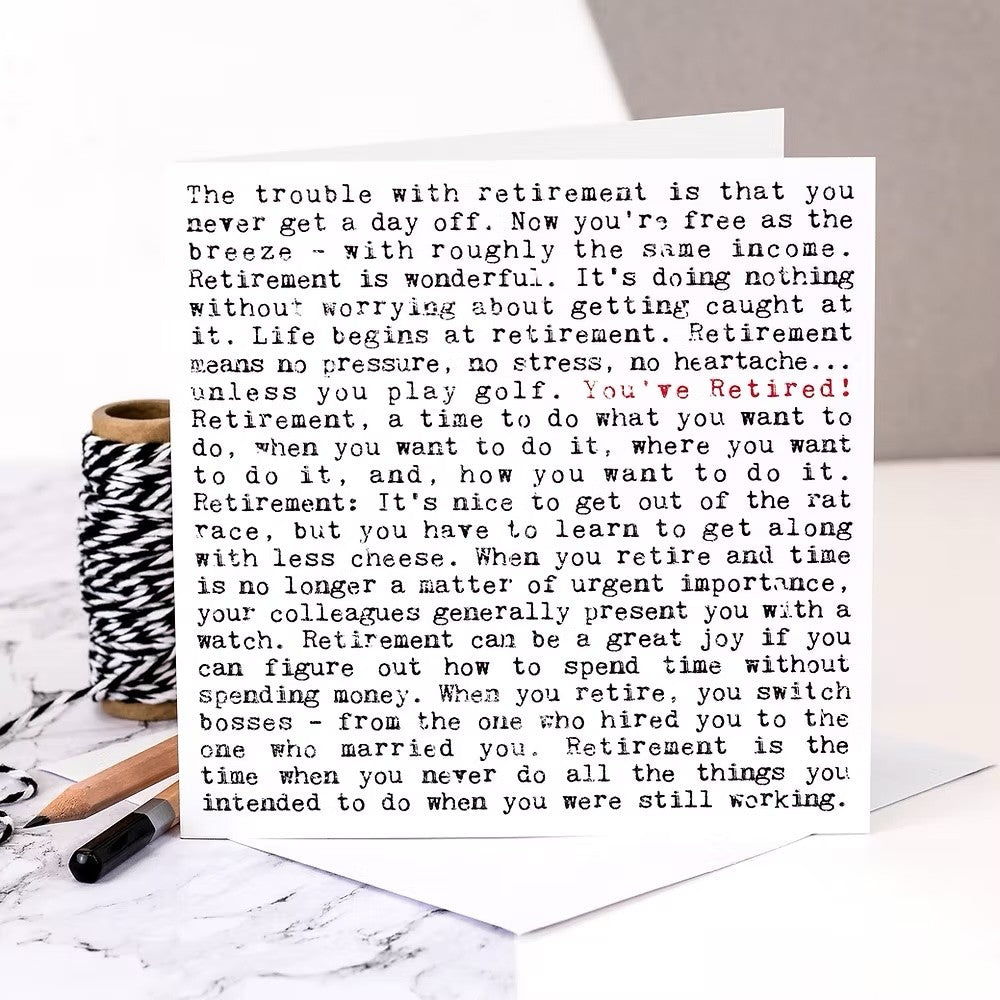 The trouble with retirement is that you
never get a day off. Now you're free as the
breeze - with roughly the same income.
Retirement is wonderful. It's doing nothing
without worrying about getting caught at
it. Life begins at retirement. Retirement
means no pressure, no stress, no heartache...
unless you play golf. You've Retired!
Retirement, a time to do what you want to
do, when you want to do it, where you want
to do it, and, how you want to do it.
Retirement: It's nice to get out of the rat
race, but you have to learn to get along
with less cheese. When you retire and time
is no longer a matter of urgent importance,
your colleagues generally present you with a
watch. Retirement can be a great joy if you
can figure out how to spend time without
spending money. When you retire, you switch
bosses - from the one who hired you to the
one who married you. Retirement is the
time when you never do all the things you
intended to do when you were still working.